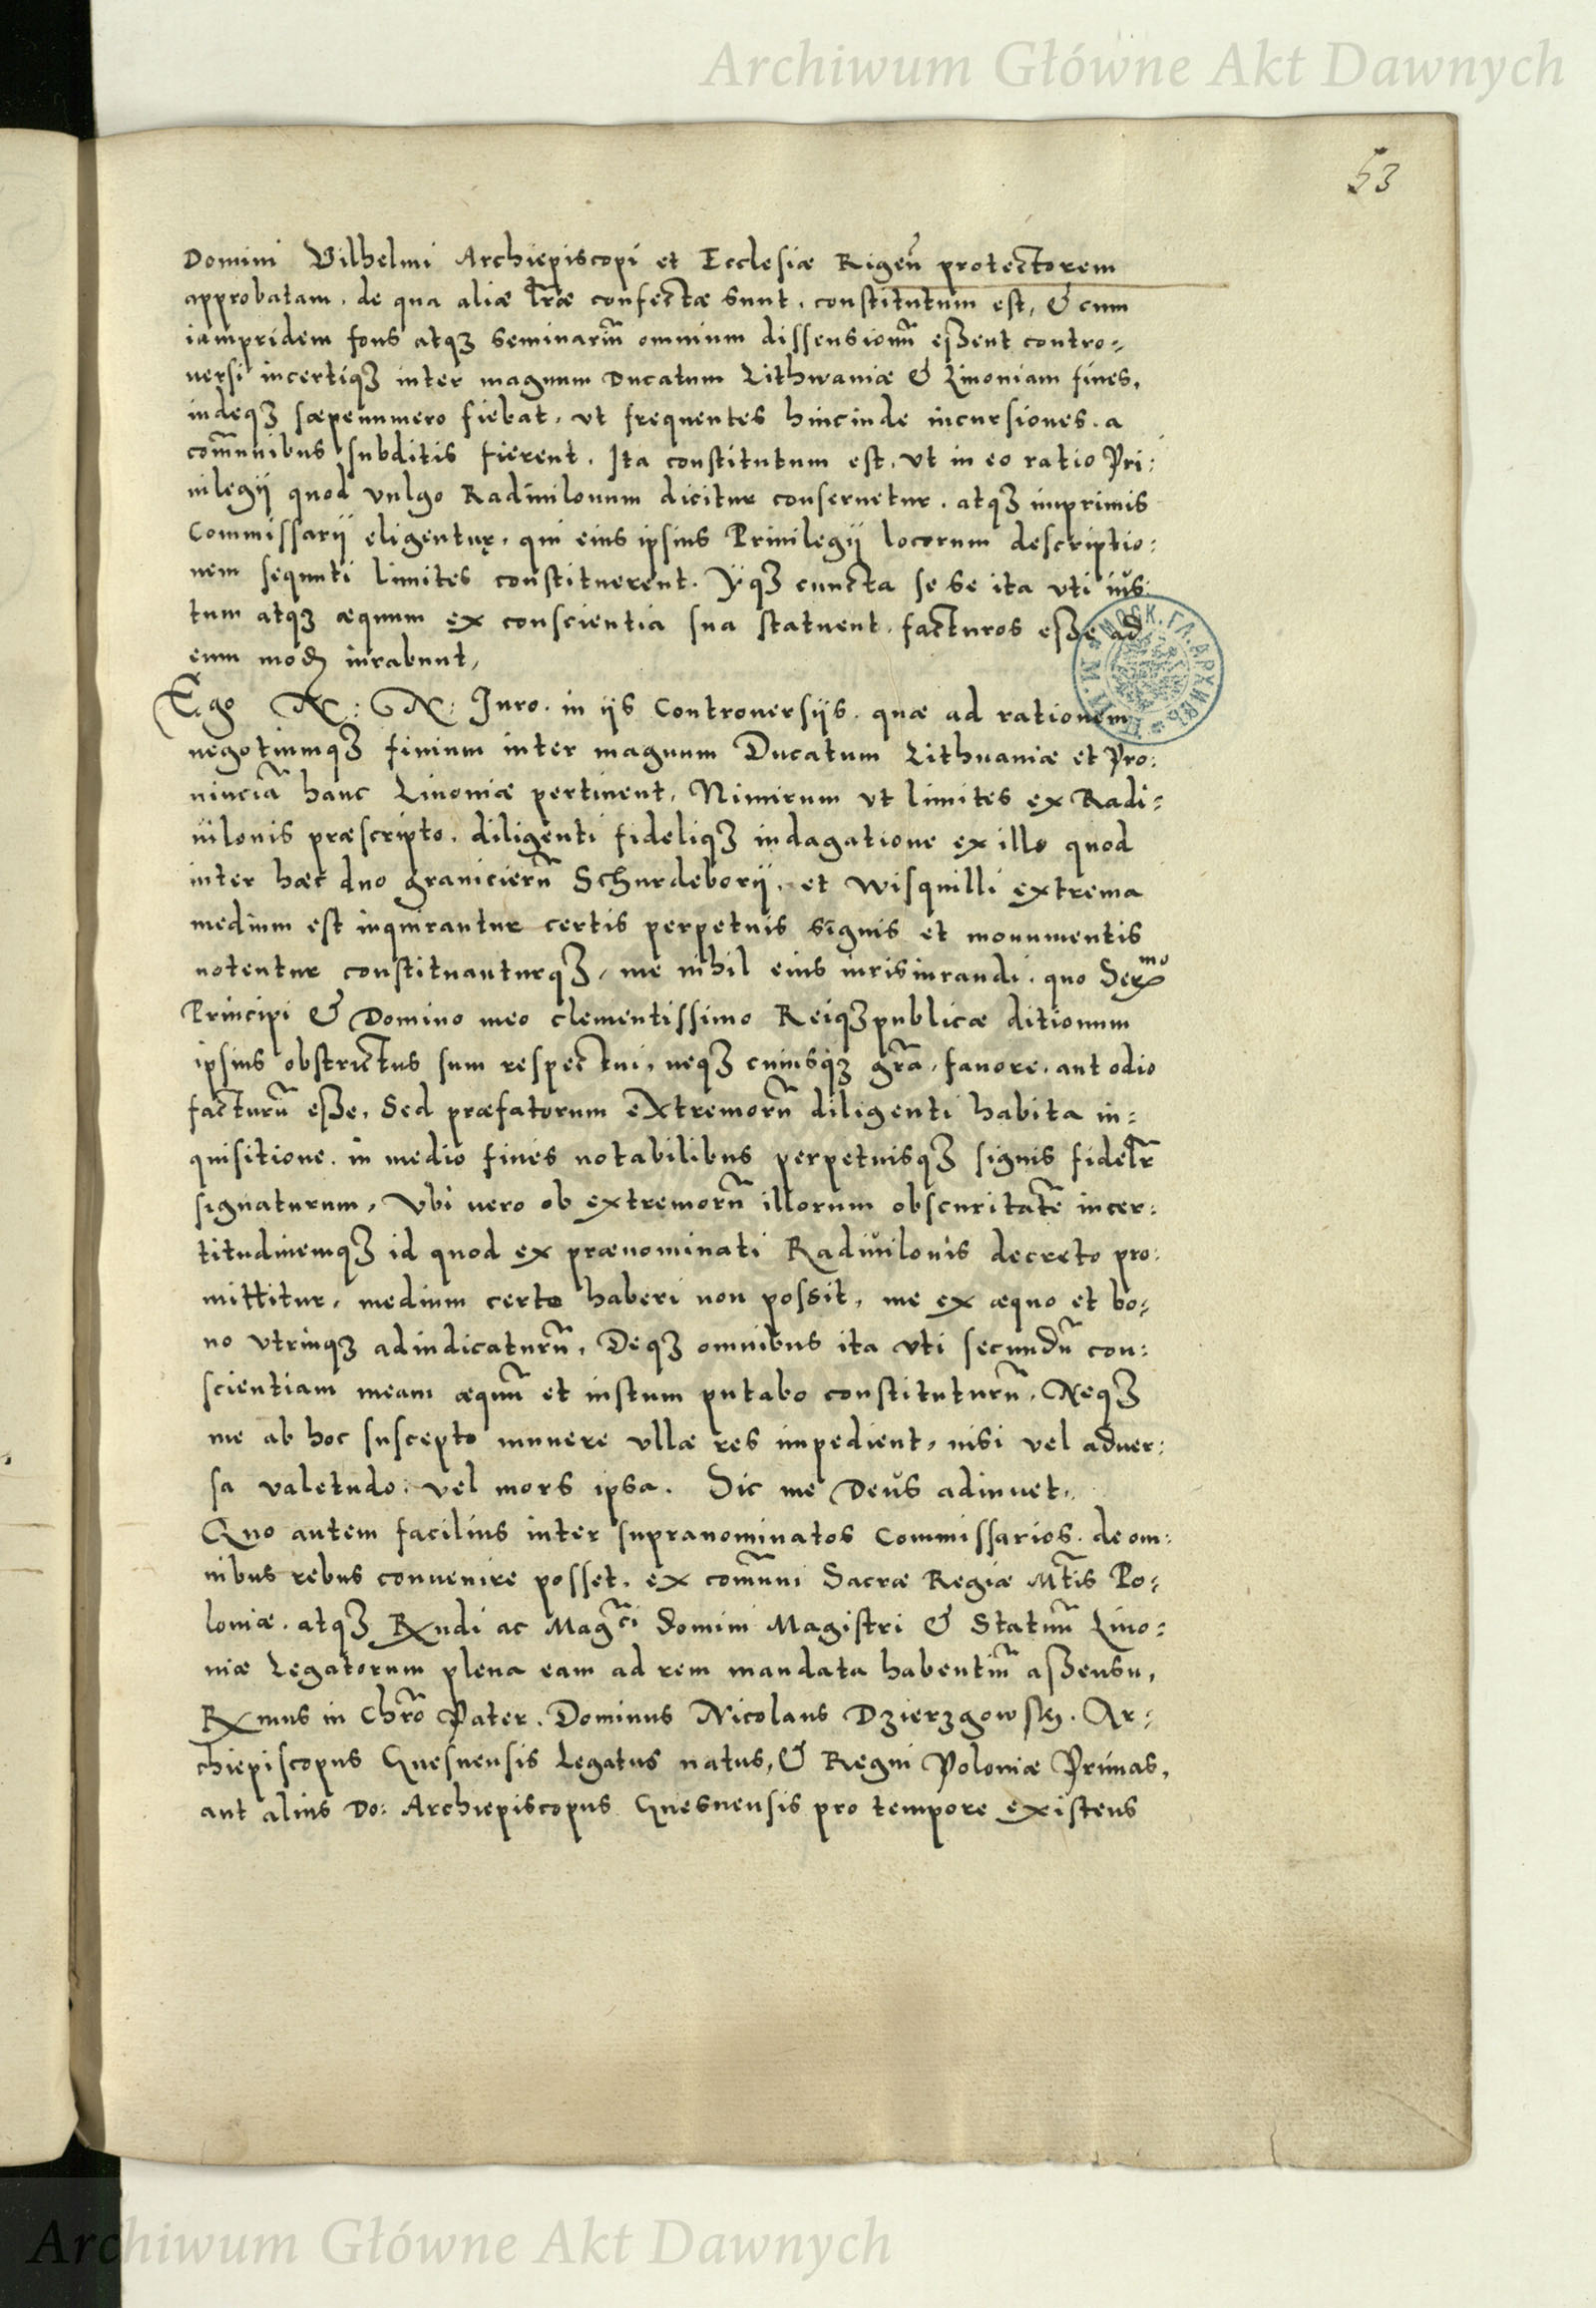 Archiwum Główne Akt Dawnych
53
Domini Vilhelmi Archiepiscopi et Ecclesiæ Rigeñ protectorem
approbatam. de qua aliæ l̃ræ confectæ sunt. constitutum est, & cum
iampridem fons atqȝ seminariũ omnium dissensionũ eßent contro⸗
uersi incertiqȝ inter magnum Ducatum Lithwaniæ & Liuoniam fines.
indeqȝ sæpenumero fiebat. vt frequentes hincinde incursiones. a
com̃unibus subditis fierent. Ita constitutum est, vt in eo ratio Pri:
uilegij quod vulgo Radiuilonum dicitur conseruetur. atqȝ imprimis
Commissarij eligentur, qui eius ipsius Priuilegij locorum descriptio:
nem sequuti limites constituerent. Yqȝ cuncta se se ita vti ius:
tum atqȝ æquum ex conscientia sua statuent. facturos eße ad
eum mod iurabunt,
Ego N: N: Juro. in ijs Controuersijs. quæ ad rationem
negotiumqȝ finium inter magnum Ducatum Lithuaniæ et Pro:
uinciã hanc Liuoniæ pertinent. Nimirum vt limites ex Radi⸗
uilonis præscripto. diligenti fideliqȝ indagatione ex illo quod
inter hæc duo granicierũ Schurdeborij, et Wisquilli extrema
medium est inquirantur certis perpetuis signis et monumentis
notentur constituanturqȝ, me nihil eius iurisiurandi. quo Serᵐᵒ
Principi & Domino meo clementissimo Reiqȝpublicæ ditionum
ipsius obstrictus sum respectui, neqȝ cuiusqȝ gr̃a, fauore. aut odio
facturũ eße. Sed præfatorum extremorũ diligenti habita in⸗
quisitione. in medio fines notabilibus perpetuisqȝ signis fidel̃r
signaturum, Vbi uero ob extremorũ illorum obscuritatẽ incer:
titudinemqȝ id quod ex prænominati Radiuilonis decreto pro:
mittitur, medium certo haberi non possit, me ex æquo et bo⸗
no vtrinqȝ adiudicaturũ. Deqȝ omnibus ita vti secundũ con:
scientiam meam æquũ et iustum putabo constituturũ. Neqȝ
me ab hoc suscepto munere vllæ res impedient, nisi vel aduer:
sa valetudo. vel mors ipsa. Sic me Deus adiuuet.
Quo autem facilius inter supranominatos Commissarios. de om:
nibus rebus conuenire posset. ex com̃uni Sacræ Regiæ Mt̃is Po⸗
loniæ. atqȝ Rndi ac Magci domini Magistri & Statuũ Liuo:
niæ Legatorum plena eam ad rem mandata habentiũ aßensu,
Rmus in Chr̃o Pater. Dominus Nicolaus Dzierzgowskj. Ar⸗
chiepiscopus Gnesnensis legatus natus, & Regni Poloniæ Primas,
aut alius Do: Archiepiscopus Gnesnensis pro tempore existens
Archiwum Główne Akt Dawnych